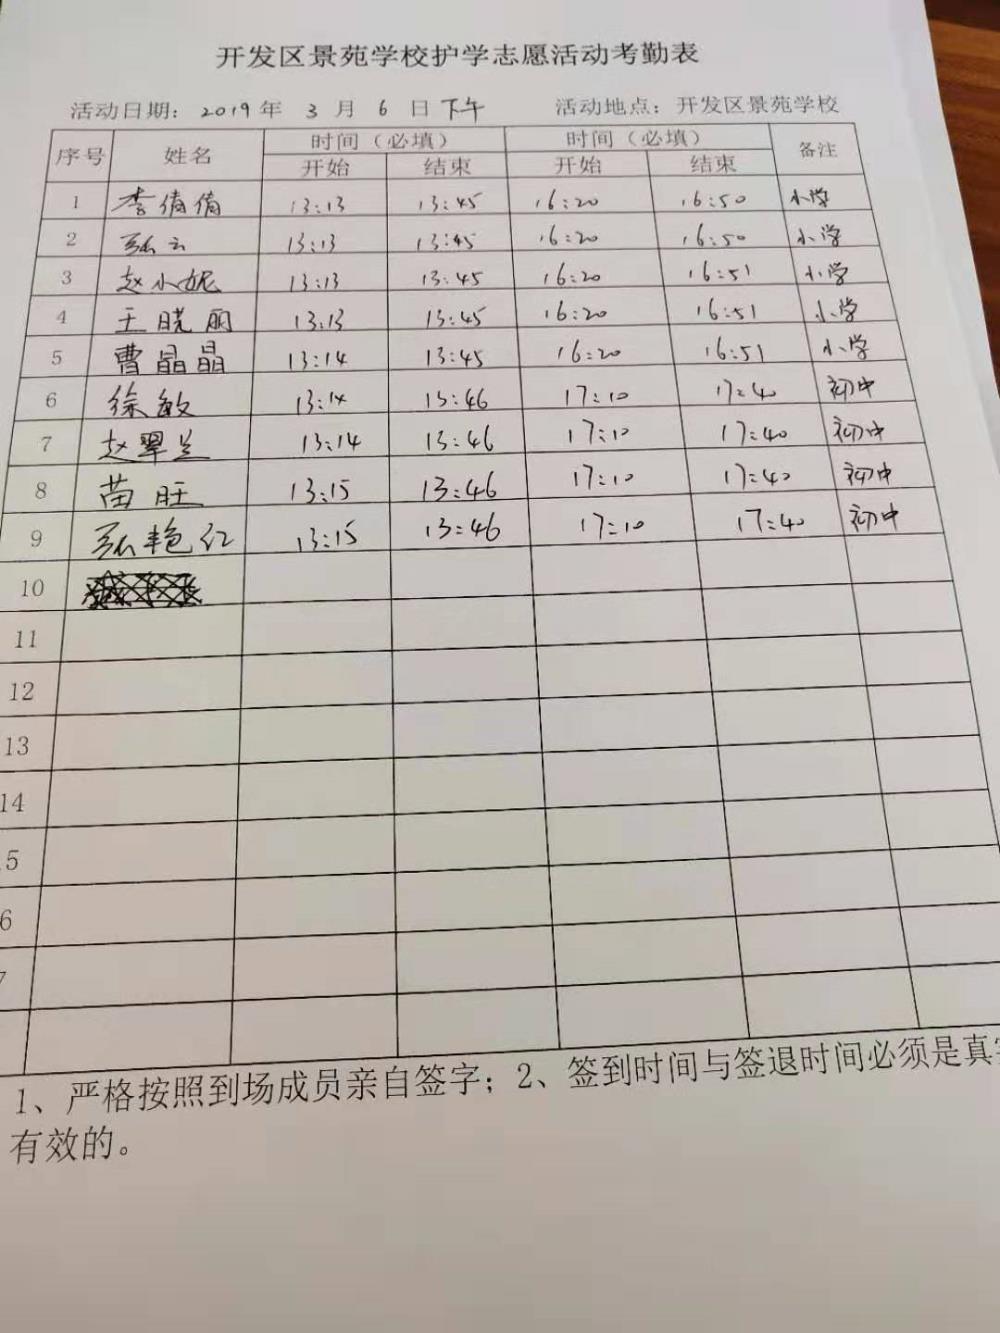 开发区景苑学校护学志愿活动考勤表
活动日期：2019年 3月 6日下午 活动地点：开发区景苑学校
序号 姓名 时间（必填） 时间（必填） 备注
开始 结束 开始 结束
1 李倩倩 13:13 13:45 16:20 16:50 小学
2 张云 13:13 13:45 16:20 16:50 小学
3 赵小妮 13:13 13:45 16:20 16:51 小学
4 王晓丽 13:13 13:45 16:20 16:51 小学
5 曹晶晶 13:14 13:45 16:20 16:51 小学
6 徐敏 13:14 13:46 17:10 17:40 初中
7 赵翠兰 13:14 13:46 17:10 17:40 初中
8 苗旺 13:15 13:46 17:10 17:40 初中
9 张艳红 13:15 13:46 17:10 17:40 初中
10
11
12
13
14
5
6
7
1、严格按照到场成员亲自签字；2、签到时间与签退时间必须是真实
有效的。